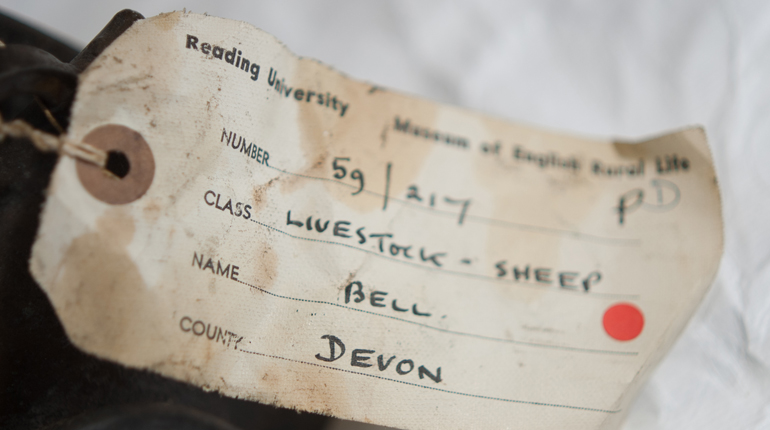 Reading University Museum of English Rural Life
NUMBER 59/217 PD
CLASS LIVESTOCK - SHEEP
NAME BELL.
COUNTY DEVON